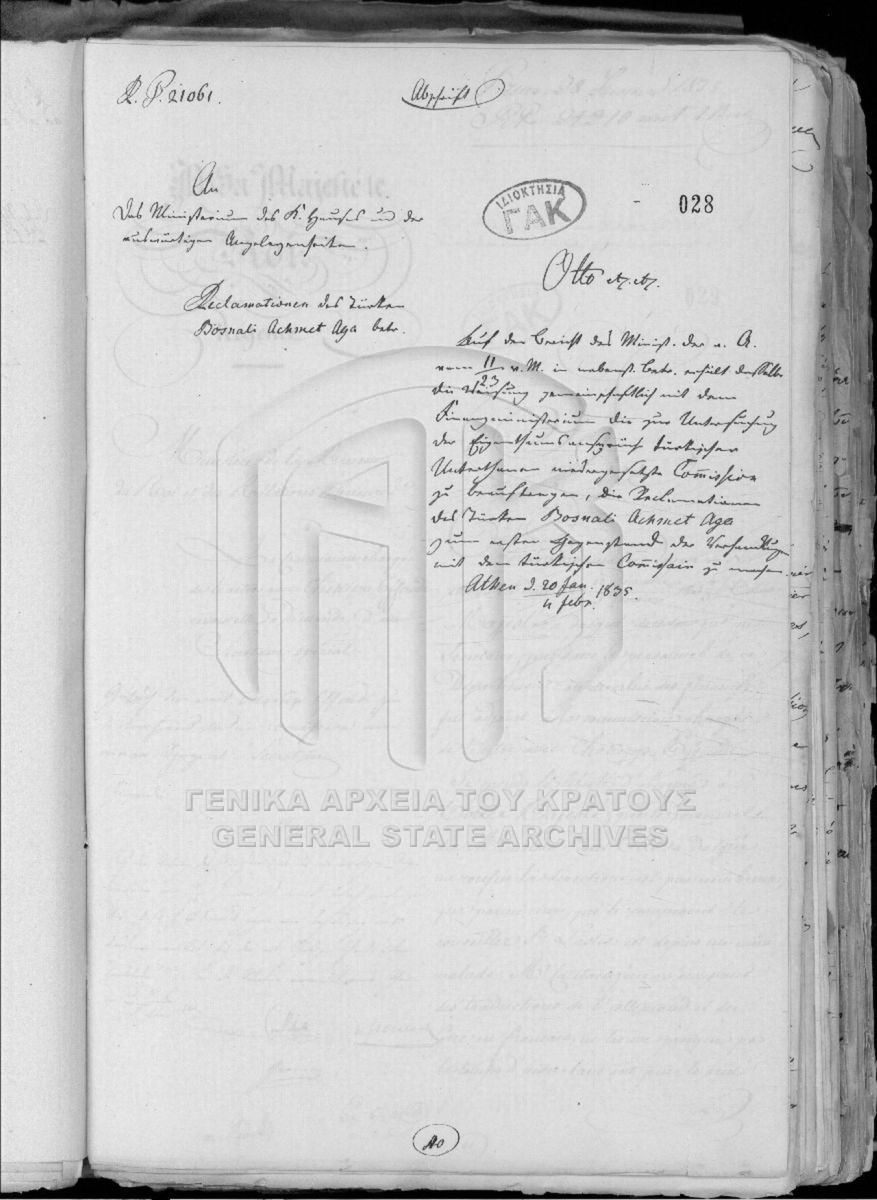 R. P. 21061.
Abschrift
An
Das Ministerium des K. Hauses und der
auswärtigen Angelegenheiten.
Reclamationen des Türken
Bosnali Achmet Aga betr.
ΙΔΙΟΚΤΗΣΙΑ
ΓΑΚ
028
Otto etc. etc.
Auf den Bericht des Minist. der a. A.
vom 11/23 v. M. in nebenst. Betr. erhält dasselbe
die Weisung gemeinschaftlich mit dem
Finanzministerium die zur Untersuchung
der Eigenthumsansprüche türkischer
Unterthanen niedergesetzte Commission
zu beauftragen, die Reclamationen
des Türken Bosnali Achmet Aga
zum ersten Gegenstande der Verhandlungen
mit dem türkischen Commissair zu machen.
Athen d. 20 Jan./4 Febr. 1835.
ΓΕΝΙΚΑ ΑΡΧΕΙΑ ΤΟΥ ΚΡΑΤΟΥΣ
GENERAL STATE ARCHIVES